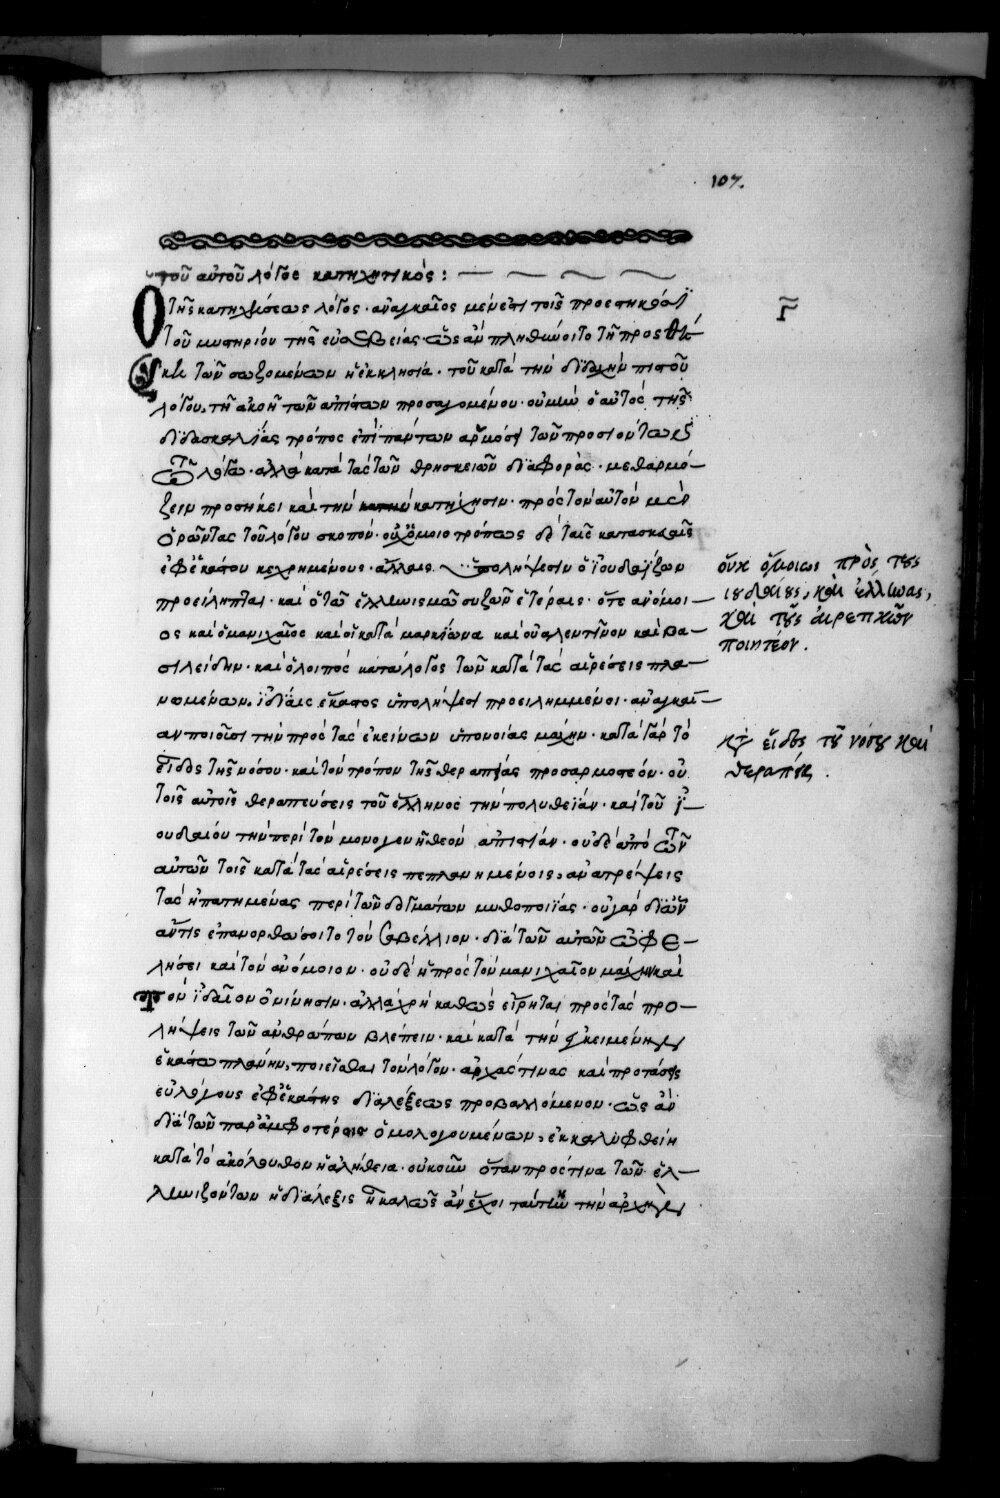 107.
τοῦ αὐτοῦ λόγος κατηχητικός :
Ὁ τῆς κατηχήσεως λόγος · ἀναγκαῖος μέν ἐστι τοῖς προεστηκόσι
τοῦ μυστηρίου τῆς εὐσεβείας · ὡς ἂν πληθύνοιτο τῇ προσθή
κῃ τῶν σωζομένων ἡ ἐκκλησία · τοῦ κατὰ τὴν διδαχὴν πιστοῦ
λόγου, τῇ ἀκοῇ τῶν ἀπίστων προσαγομένου · οὐ μὴν ὁ αὐτὸς τῆς
διδασκαλίας τρόπος ἐπὶ πάντων ἁρμόσει τῶν προσιόντων
τῷ λόγῳ · ἀλλὰ κατὰ τὰς τῶν θρησκειῶν διαφορὰς · μεθαρμό–
ζειν προσήκει καὶ τὴν κατήχησιν · πρὸς τὸν αὐτὸν μὲν
ὁρῶντας τοῦ λόγου σκοπόν · οὐχ ὁμοιοτρόπως δὲ ταῖς κατασκευαῖς
ἐφ' ἑκάστου κεχρημένους · ἄλλαις ὑπολήψεσιν ὁ ἰουδαΐζων
προείληπται · καὶ ὁ τῷ ἑλληνισμῷ συζῶν ἑτέραις · ὅτε ἀνόμοι–
ος καὶ ὁ μανιχαῖος καὶ οἱ κατὰ μαρκίωνα καὶ οὐαλεντῖνον καὶ βα–
σιλείδην · καὶ ὁ λοιπὸς κατάλογος τῶν κατὰ τὰς αἱρέσεις πλα–
νωμένων. ἰδίαις ἕκαστος ὑπολήψεσι προειλημμένοι · ἀναγκαί–
αν ποιοῦσι τὴν πρὸς τὰς ἐκείνων ὑπονοίας μάχην · κατὰ γὰρ τὸ
εἶδος τῆς νόσου · καὶ τὸν τρόπον τῆς θεραπείας προσαρμοστέον · οὐ
τοῖς αὐτοῖς θεραπεύσεις τοῦ ἕλληνος τὴν πολυθεΐαν · καὶ τοῦ ἰ–
ουδαίου τὴν περὶ τὸν μονογενῆ θεὸν ἀπιστίαν · οὐδὲ ἀπὸ τῶν
αὐτῶν τοῖς κατὰ τὰς αἱρέσεις πεπλανημένοις, ἀνατρέψεις
τὰς ἠπατημένας περὶ τῶν δογμάτων μυθοποιΐας · οὐ γὰρ δι' ὧν
ἄν τις ἐπανορθώσοιτο τὸν Σαβέλλιον · διὰ τῶν αὐτῶν ὠφε–
λήσει καὶ τὸν ἀνόμοιον · οὐδὲ ἡ πρὸς τὸν μανιχαῖον μάχη καὶ
τὸν ἰουδαῖον ὀνίνησιν · ἀλλὰ χρὴ καθὼς εἴρηται πρὸς τὰς προ–
λήψεις τῶν ἀνθρώπων βλέπειν · καὶ κατὰ τὴν ἐγκειμένην
ἑκάστῳ πλάνην, ποιεῖσθαι τὸν λόγον · ἀρχάς τινας καὶ προτάσεις
εὐλόγους ἐφ' ἑκάστης διαλέξεως προβαλλόμενον · ὡς ἂν
διὰ τῶν παρ' ἀμφοτέροις ὁμολογουμένων, ἐκκαλυφθείη
κατὰ τὸ ἀκόλουθον ἡ ἀλήθεια · οὐκοῦν ὅταν πρός τινα τῶν ἑλ–
ληνιζόντων ἡ διάλεξις ᾖ καλῶς ἂν ἔχοι ταύτην τὴν ἀρχὴν
οὐχ ὁμοίως πρὸς τοὺς
ἰουδαίους, καὶ ἕλληνας,
καὶ τοὺς αἱρετικοὺς
ποιητέον.
κατὰ τὸ εἶδος τοῦ νόσου καὶ
θεραπείας.